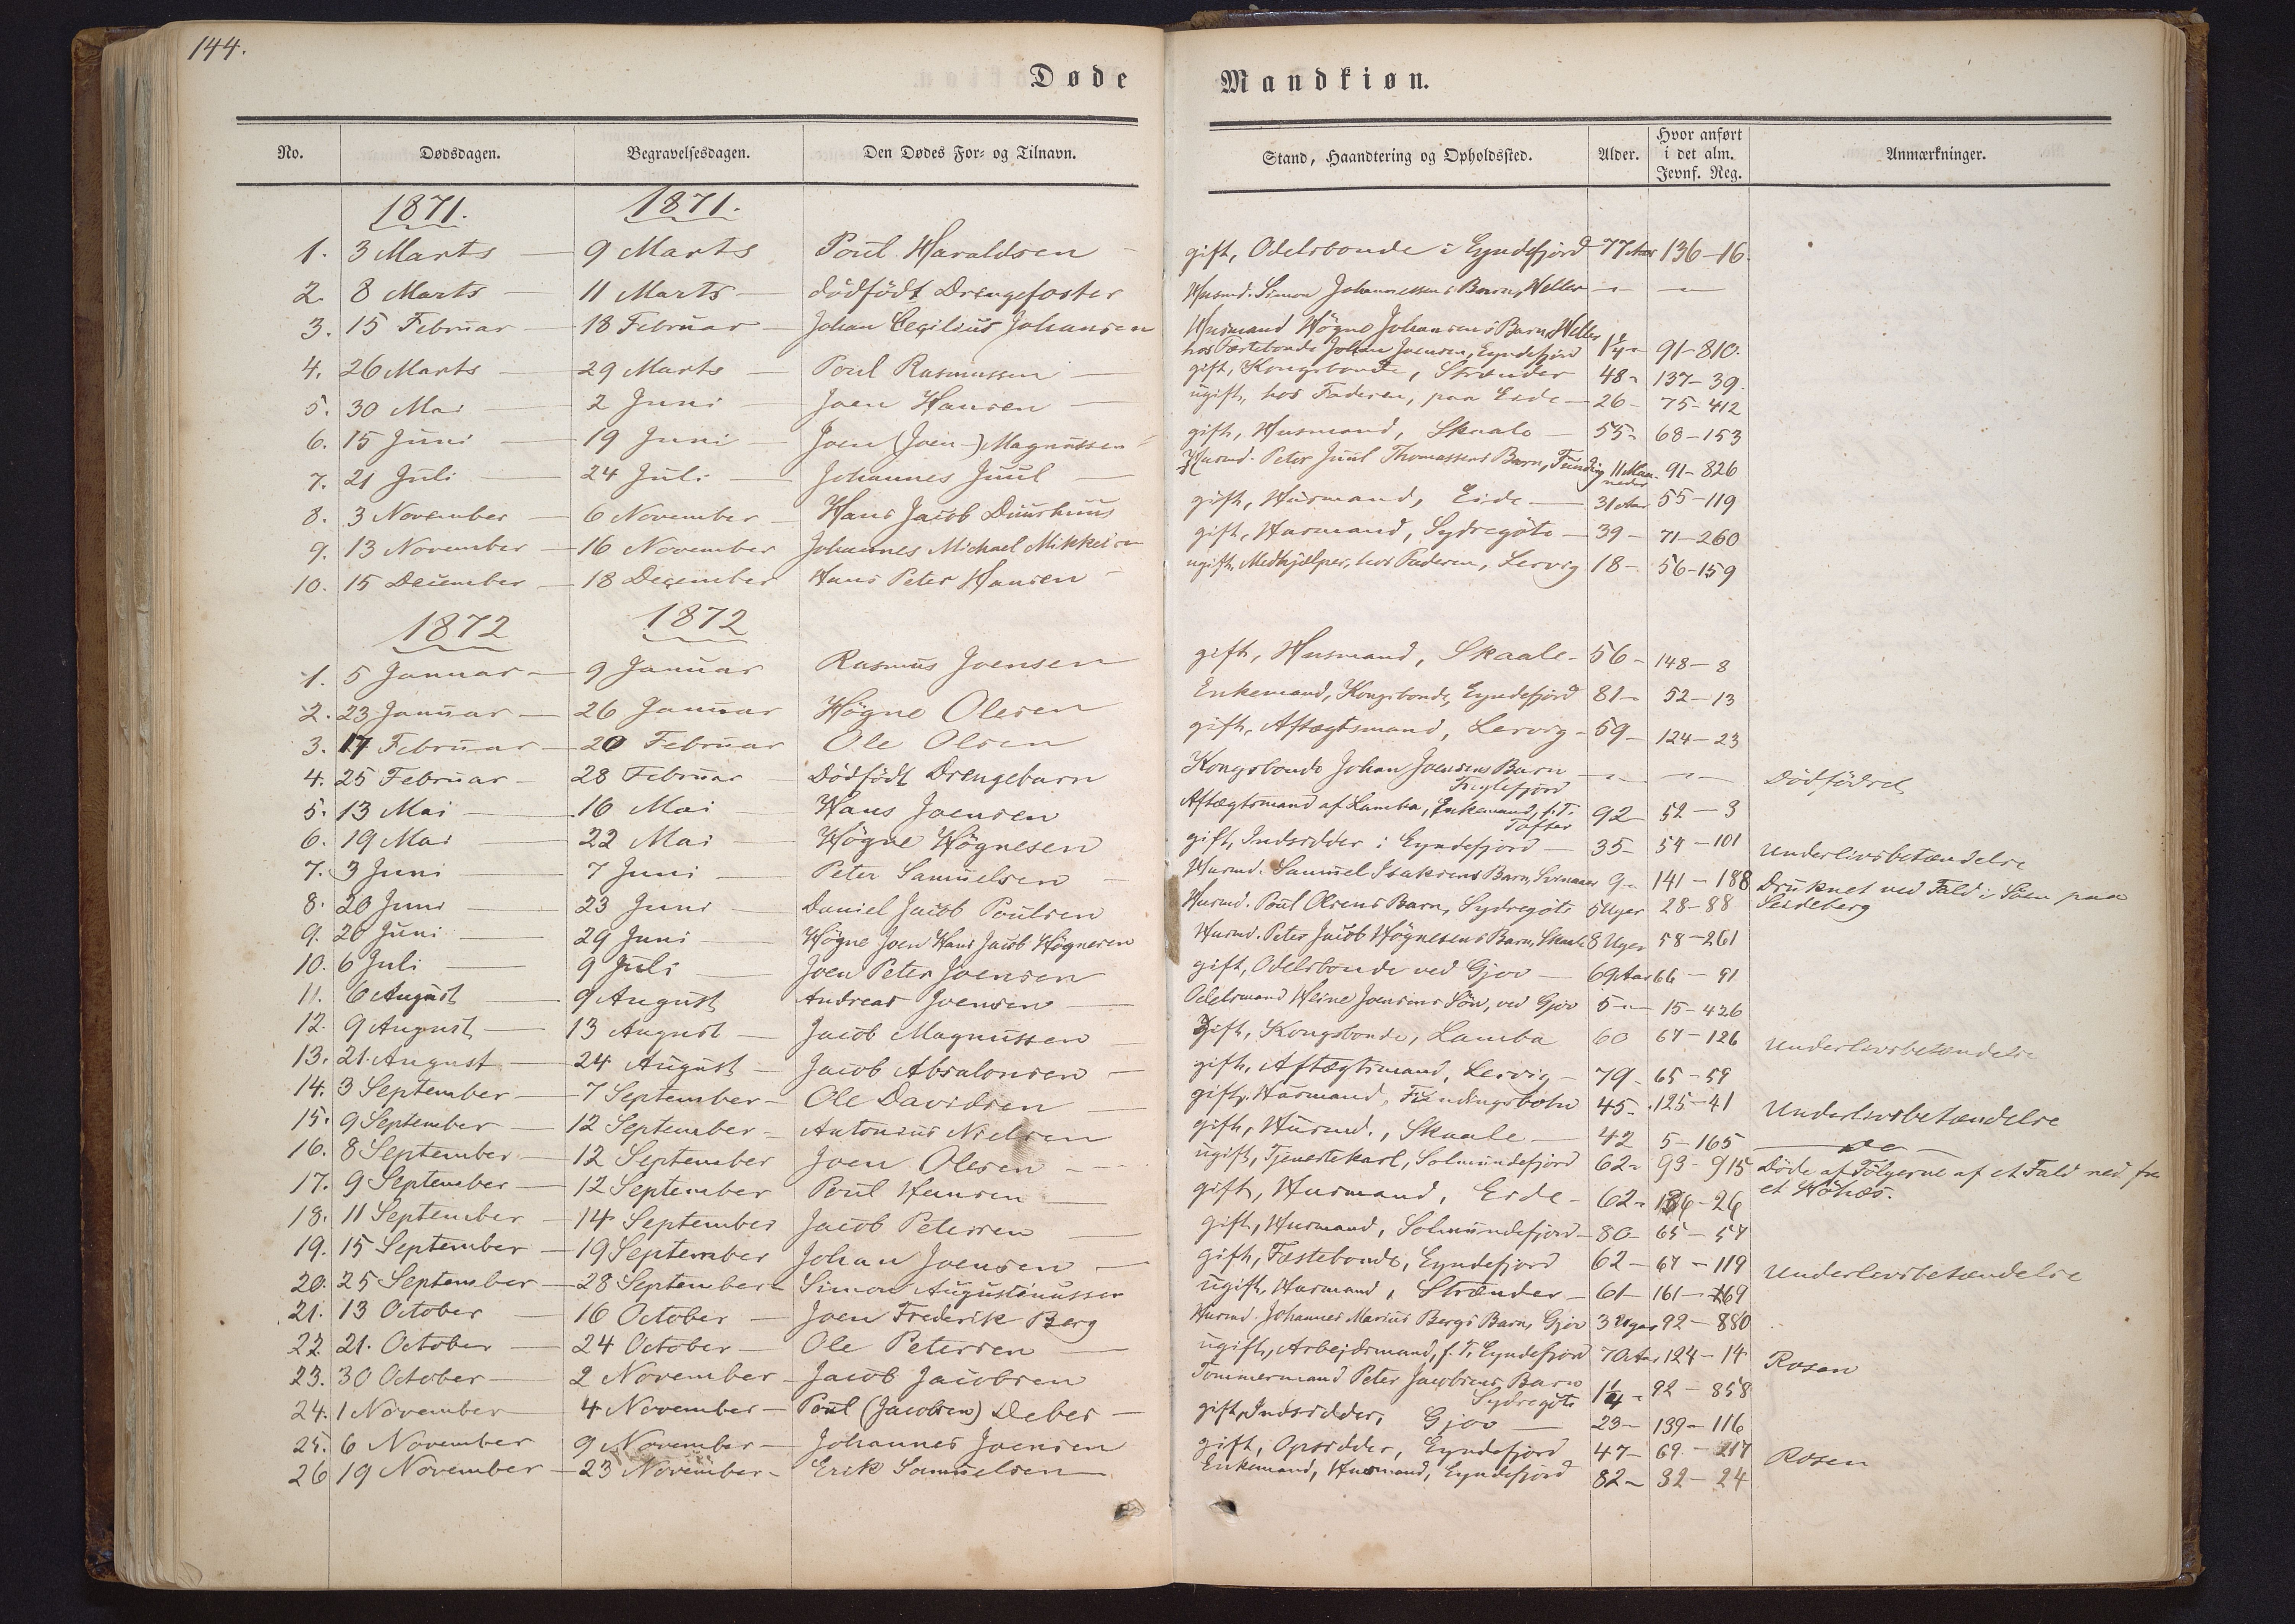 144.
Døde Mandkiøn.
No. Dødsdagen. Begravelsesdagen. Den Dødes For- og Tilnavn. Stand, Haandtering og Opholdssted. Alder. Hvor anført i det alm. Jevnf. Reg. Anmærkninger.
1871. 1871.
1. 3 Marts — 9 Marts Poul Haraldsen — gift, Odelsbonde i Eyndefjord 77 Aar 136-16.
2. 8 Marts — 11 Marts — dödfödt Drengefoster Husmd. Simon Johannessens Barn, Weller — —
3. 15 Februar — 18 Februar — Johan Cecilius Johansen Husmand Högne Johansens Barn, Weller
hos Fæstebonde Johan Joensen, Eyndefjord 1 1/4 " 91-810.
4. 26 Marts — 29 Marts — Poul Rasmussen — gift, Kongsbonde, Strænder 48 " 137-39.
5. 30 Mai — 2 Juni — Joen Hansen — ugift, hos Faderen, paa Eide — 26 - 75-412
6. 15 Juni — 19 Juni — Joen (Joen-) Magnussen gift, Husmand, Skaale — 55 " 68-153
7. 21 Juli — 24 Juli — Johannes Juul — Husmd. Peter Juul Thomassens Barn, Funding 11 Maaneder 91-826
8. 3 November — 6 November — Hans Jacob Duurhuus gift, Husmand, Eide — 31 Aar 55-119
9. 13 November — 16 November Johannes Michael Mikkelsen gift, Husmand, Sydregöte — 39 - 71-260
10. 15 December — 18 December Hans Peter Hansen — ugift, Medhjælper, hos Faderen, Lervig 18 - 56-159
1872 1872
1. 5 Januar — 9 Januar Rasmus Joensen gift, Husmand, Skaale - 56 - 148-8
2. 23 Januar — 26 Januar Högne Olesen Enkemand, Kongsbonde, Eyndefjord 81 - 52-13
3. 17 Februar — 20 Februar Ole Olsen gift, Aftægtsmand, Lervig - 59 - 124-23
4. 25 Februar — 28 Februar Dödfödt Drengebarn Kongsbonde Johan Joensens Barn — — Dödfödsel
Fuglefjord
5. 13 Mai — 16 Mai Hans Joensen Aftægtsmand af Lamba, Enkemand, f.T. Tofter 92 - 52-3
6. 19 Mai — 22 Mai — Högne Högnesen gift, Indsidder i Eyndefjord — 35 - 54-101 Underlivsbetændelse
7. 3 Juni — 7 Juni — Peter Samuelsen — Husmd. Samuel Isaksens Barn, 9 " 141-188 Druknet ved Fald i Söen paa
8. 20 Juni — 23 Juni — Daniel Jacob Poulsen Husmd. Poul Olsens Barn, Sydregöte 5 Uger 28-88 Seideberg
9. 26 Juni — 29 Juni — Högne Joen Hans Jacob Högnesen Husmd. Peter Jacob Högnesens Barn, Skaale 8 Uger 58-261
10. 6 Juli — 9 Juli — Joen Peter Joensen gift, Odelsbonde ved Gjov — 69 Aar 66-91
11. 6 August — 9 August Andreas Joensen — Odelsmand Heine Joensens Sön, ved Gjov 5 " 15-426
12. 9 August — 13 August — Jacob Magnussen — gift, Kongsbonde, Lamba 60 67-126 Underlivsbetændelse
13. 21. August — 24 August — Jacob Absalonsen — gift, Aftægtsmand, Lervig — 79 - 65-59
14. 3 September — 7 September — Ole Davidsen — gift, Husmand, Fundingsbotn 45 - 125-41 Underlivsbetændelse
15. 9 September — 12 September - Antonius Nielsen gift, Husmd., Skaale — 42 5-165 — do —
16. 8 September — 12 September Joen Olesen — ugift, Tjenestekarl, Solmundefjord 62 " 93-915 Döde af Fölgerne af et Fald ned fra
17. 9 September — 12 September Poul Hansen — gift, Husmand, Eide - 62 " 136-26 et Höhæs.
18. 11 September — 14 September Jacob Petersen — gift, Husmand, Solmundefjord - 80 - 65-54
19. 15 September — 19 September Johan Joensen — gift, Fæstebonde, Eyndefjord 62 - 67-119 Underlivsbetændelse
20. 25 September — 28 September Simon Augustinussen ugift, Husmand, Strænder - 61 - 161-269
21. 13 October — 16 October — Joen Frederik Berg Husmd. Johannes Marius Bergs Barn, Gjov 3 Uger 92-880
22 21. October — 24 October — Ole Petersen — ugift, Arbejdsmand, f.T. Eyndefjord 70 Aar 124-14 Rosen
23. 30 October — 2 November - Jacob Jacobsen Tømmermand Peter Jacobsens Barn
Sydregöte 1 1/4 - 92-858
24. 1 November — 4 November — Poul (Jacobsen) Debes — gift, Indsidder, Gjov — 23 - 139-116
25. 6 November 9 November — Johannes Joensen gift, Opsidder, Eyndefjord 47 - 69-217 Rosen
26 19 November — 23 November - Erik Samuelsen — Enkemand, Husmand, Eyndefjord 82 - 32-24